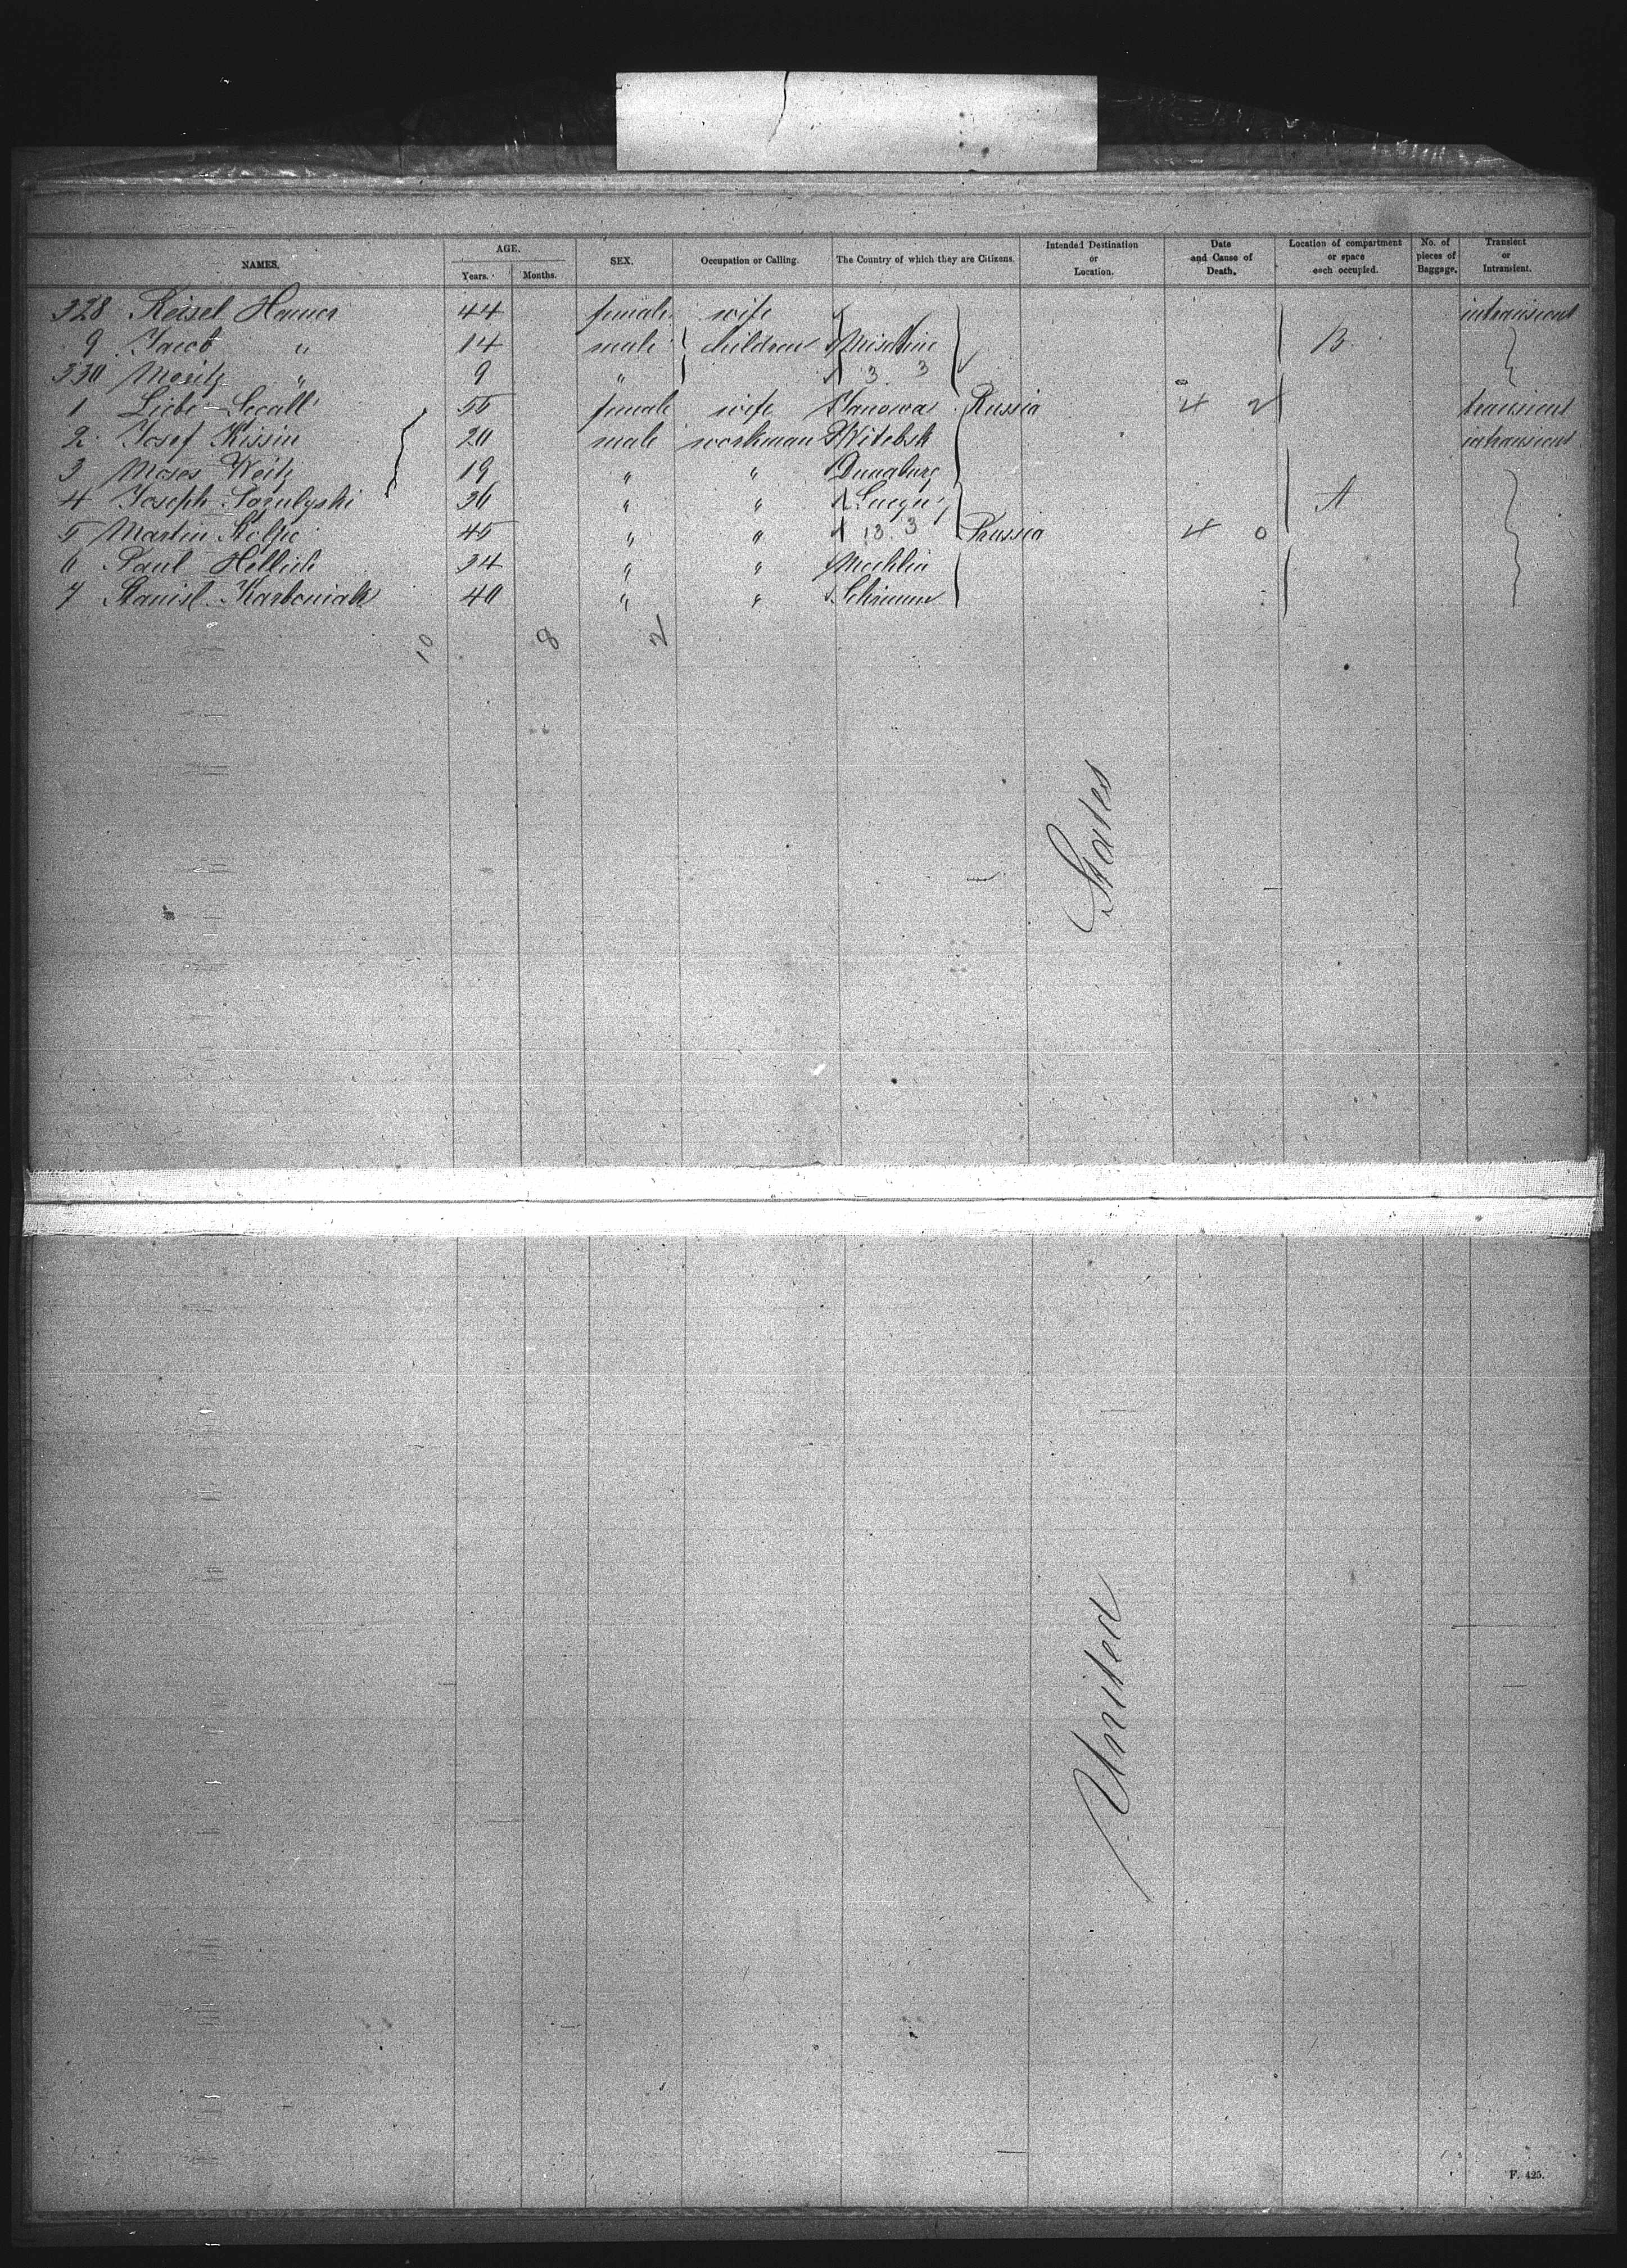 NAMES. AGE. Years. Months. SEX. Occupation or Calling. The Country of which they are Citizens. Intended Destination or Location. Date and Cause of Death. Location of compartment or space each occupied. No. of pieces of Baggage. Transient or Intransient.
328 Reisel Hamer 44 female wife intransient
9 Jacob " 14 male children B
330 Moritz " 9 " 3 3
1 Liebe Segall 55 female wife Janowa Russia 4 2 transient
2 Josef Kissin 20 male workman Witebsk intransient
3 Moses Weitz 19 " " Dunaburg
4 Joseph 36 " " A
5 Martin 45 " " 13 3 Prussia 4 0
6 Paul Hellich 34 " " Mechlin
7 Stanisl. Karboniak 40 " " Schrimm
10 8 2
States
United
F. 425.